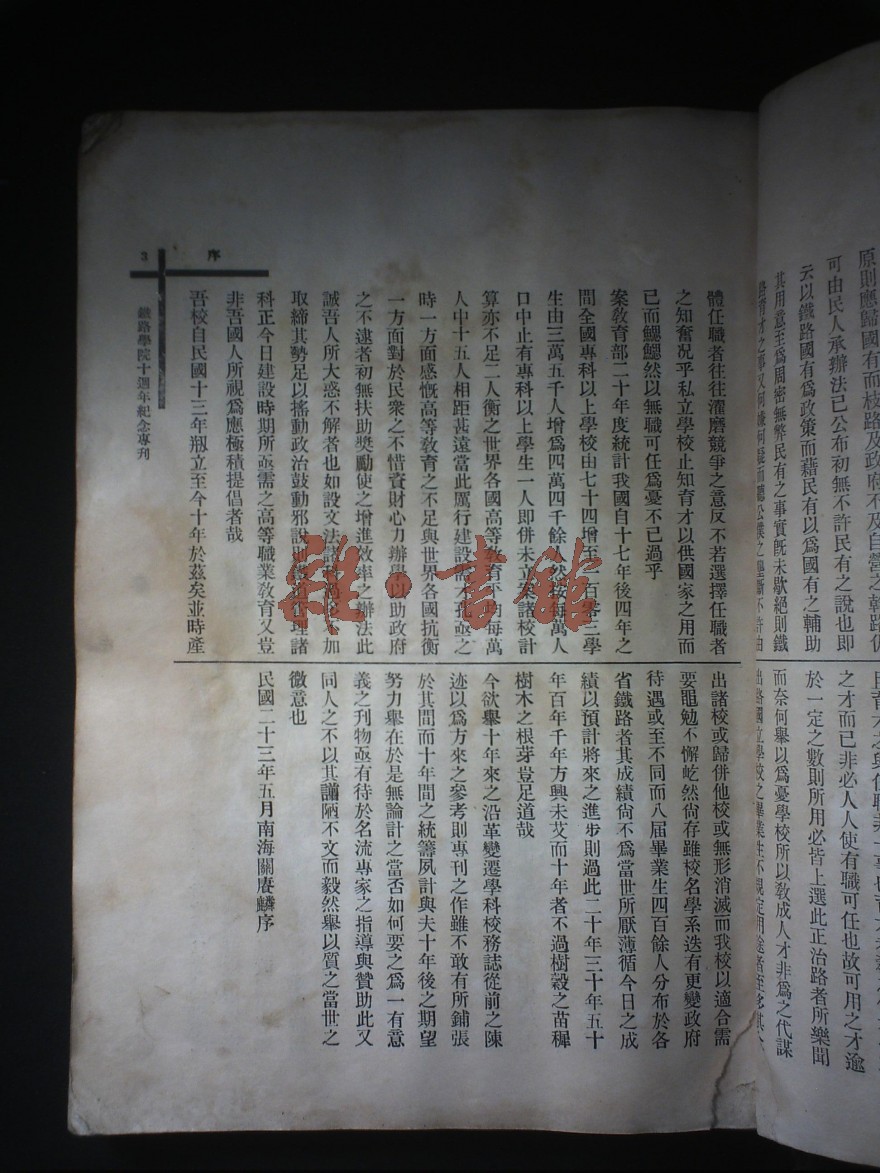 原則應歸國有而枝路及政府不及自營之幹路仍
可由民人承辦法已公布初無不許民有之說也即
云以鐵路國有爲政策而藉民有以爲國有之輔助
其用意至爲周密無弊民有之事實既未歇絕則鐵
之才而已非必人人使有職可任也故可用之才逾
於一定之數則所用必皆上選此正治路者所樂聞
而奈何舉以爲憂學校所以教成人才非爲之代謀
出路國立學校之畢業生不規定用途者至多其
體任職者往往濯磨競爭之意反不若選擇任職者
之知奮況乎私立學校止知育才以供國家之用而
已而鰓鰓然以無職可任爲憂不已過乎
案教育部二十年度統計我國自十七年後四年之
間全國專科以上學校由七十四增至一百零三學
生由三萬五千人增爲四萬四千餘人然按每萬人
口中止有專科以上學生一人即併未立案諸校計
算亦不足二人衡之世界各國高等教育平均每萬
人中十五人相距甚遠當此厲行建設需才孔亟之
時一方面感慨高等教育之不足與世界各國抗衡
一方面對於民衆之不惜資財心力辦學以助政府
之不逮者初無扶助獎勵使之增進效率之辦法此
誠吾人所大惑不解者也如設文法諸科 加
取締其勢足以搖動政治鼓動邪說則 理諸
科正今日建設時期所亟需之高等職業教育又豈
非吾國人所視爲應極積提倡者哉
吾校自民國十三年瓶立至今十年於茲矣並時產
出諸校或歸併他校或無形消滅而我校以適合需
要黽勉不懈屹然尙存雖校名學系迭有更變政府
待遇或至不同而八届畢業生四百餘人分布於各
省鐵路者其成績尙不爲當世所厭薄循今日之成
績以預計將來之進步則過此二十年三十年五十
年百年千年方興未艾而十年者不過樹穀之苗穉
樹木之根芽豈足道哉
今欲舉十年來之沿革變遷學科校務誌從前之陳
迹以爲方來之參考則專刊之作雖不敢有所鋪張
於其間而十年間之統籌夙計與夫十年後之期望
努力舉在於是無論計之當否如何要之爲一有意
義之刊物亟有待於名流專家之指導與贊助此又
同人之不以其譾陋不文而毅然舉以質之當世之
徵意也
民國二十三年五月南海關賡麟序
序
3
鐵路學院十週年紀念專刊
雜·書館